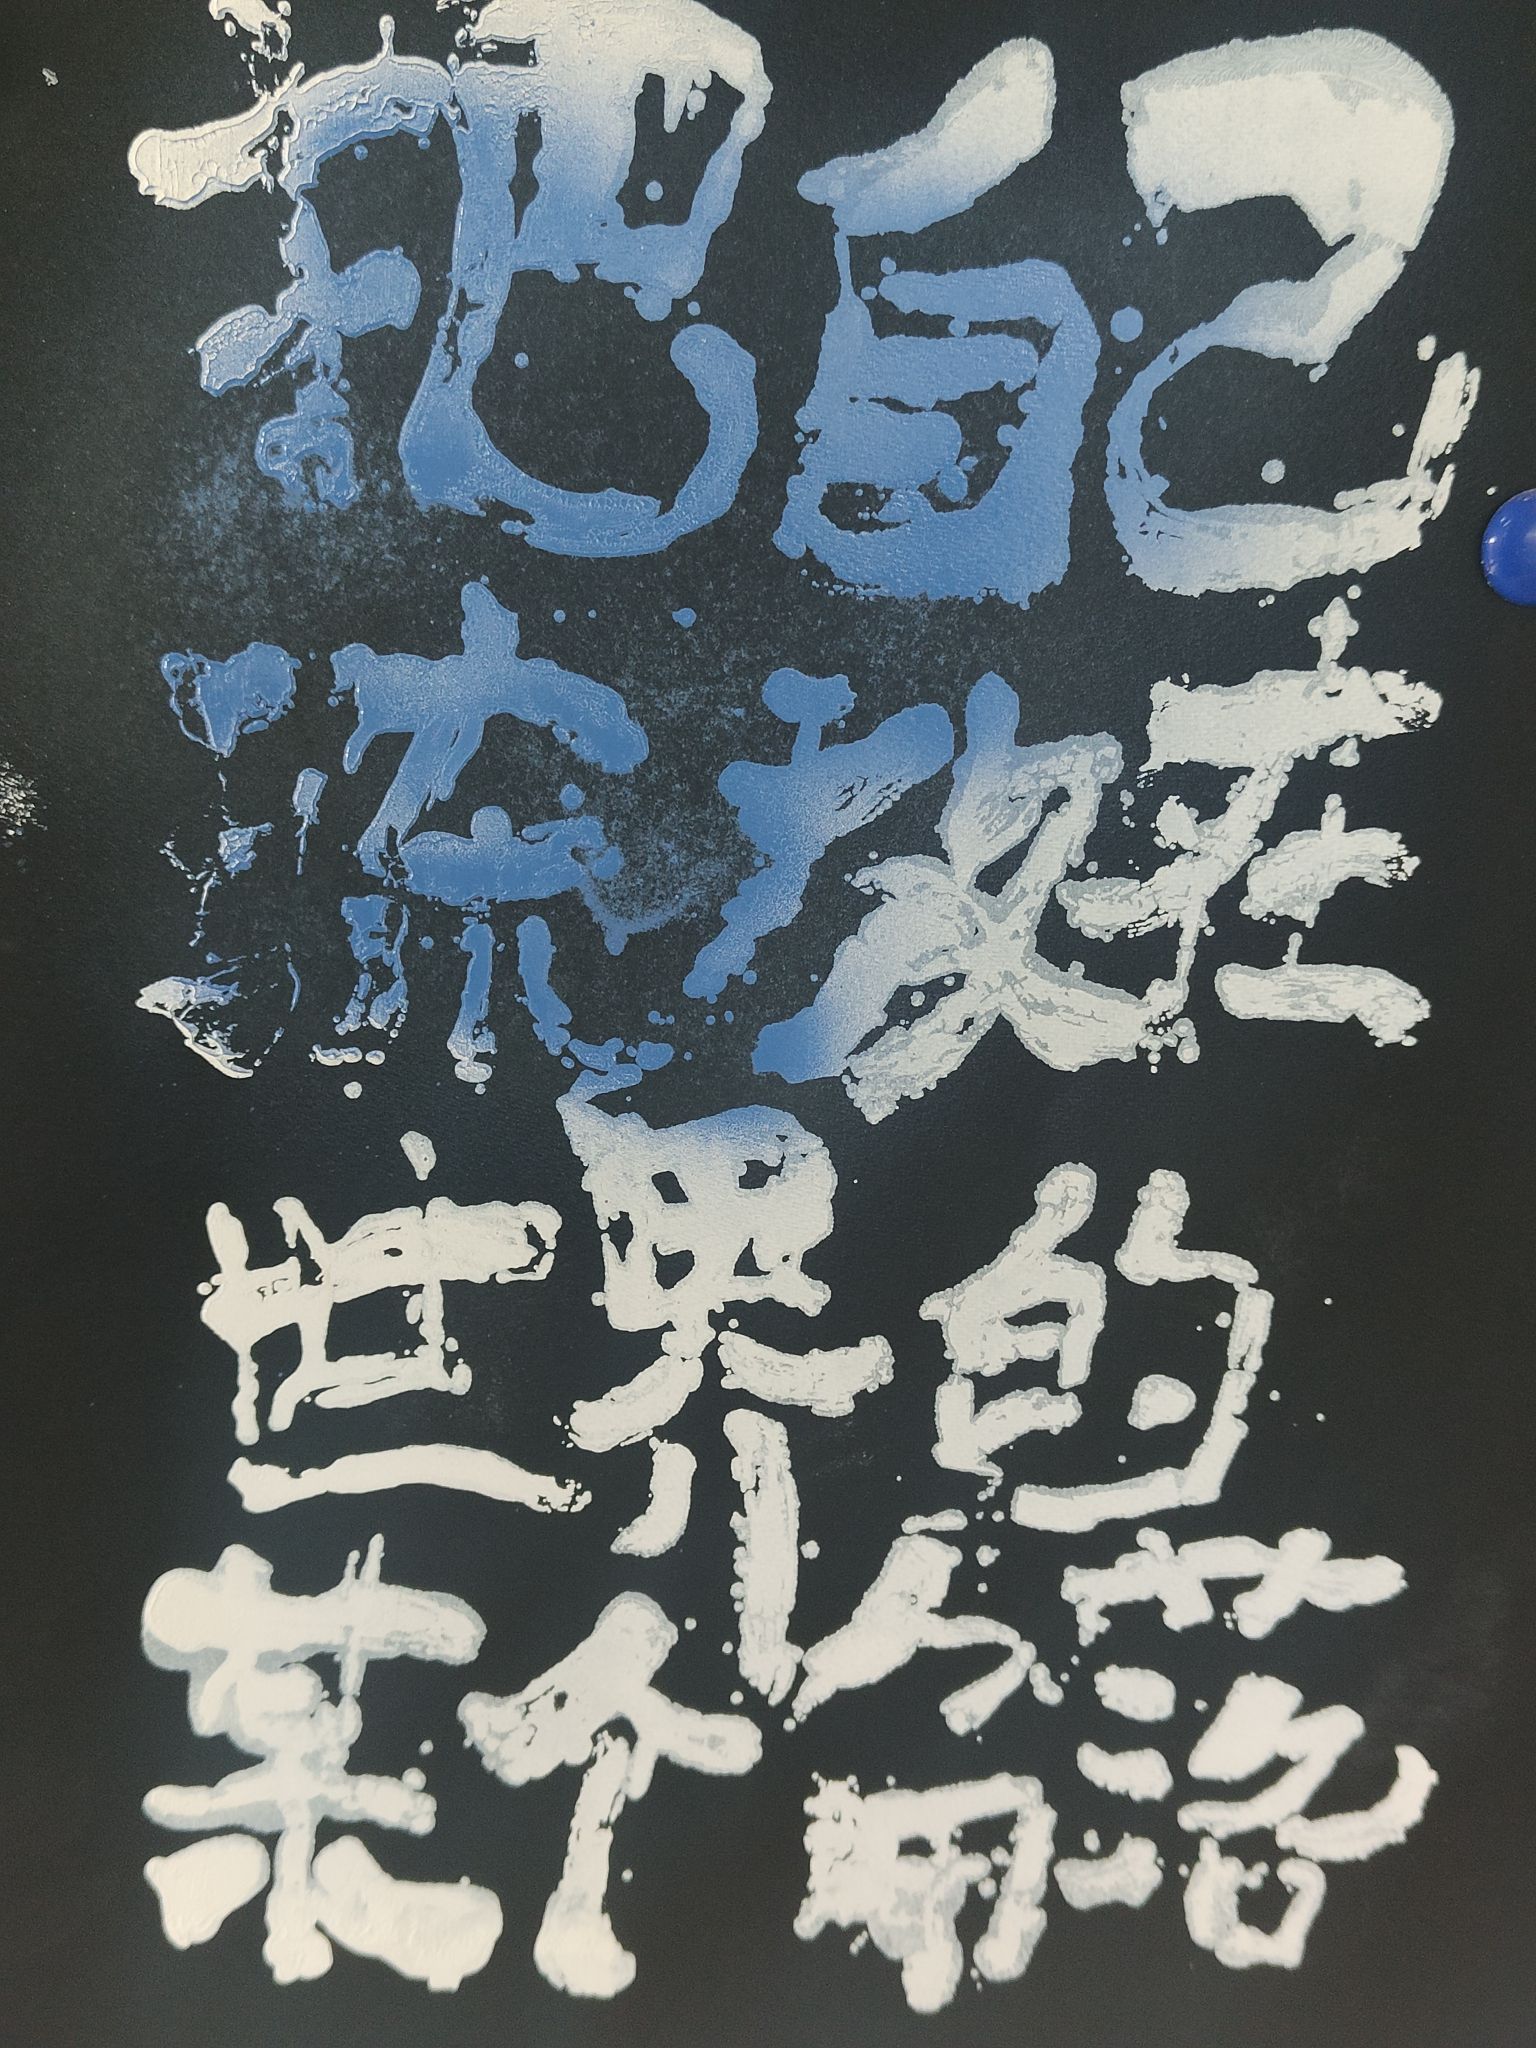 把自己
流放在
世界的
某个角落